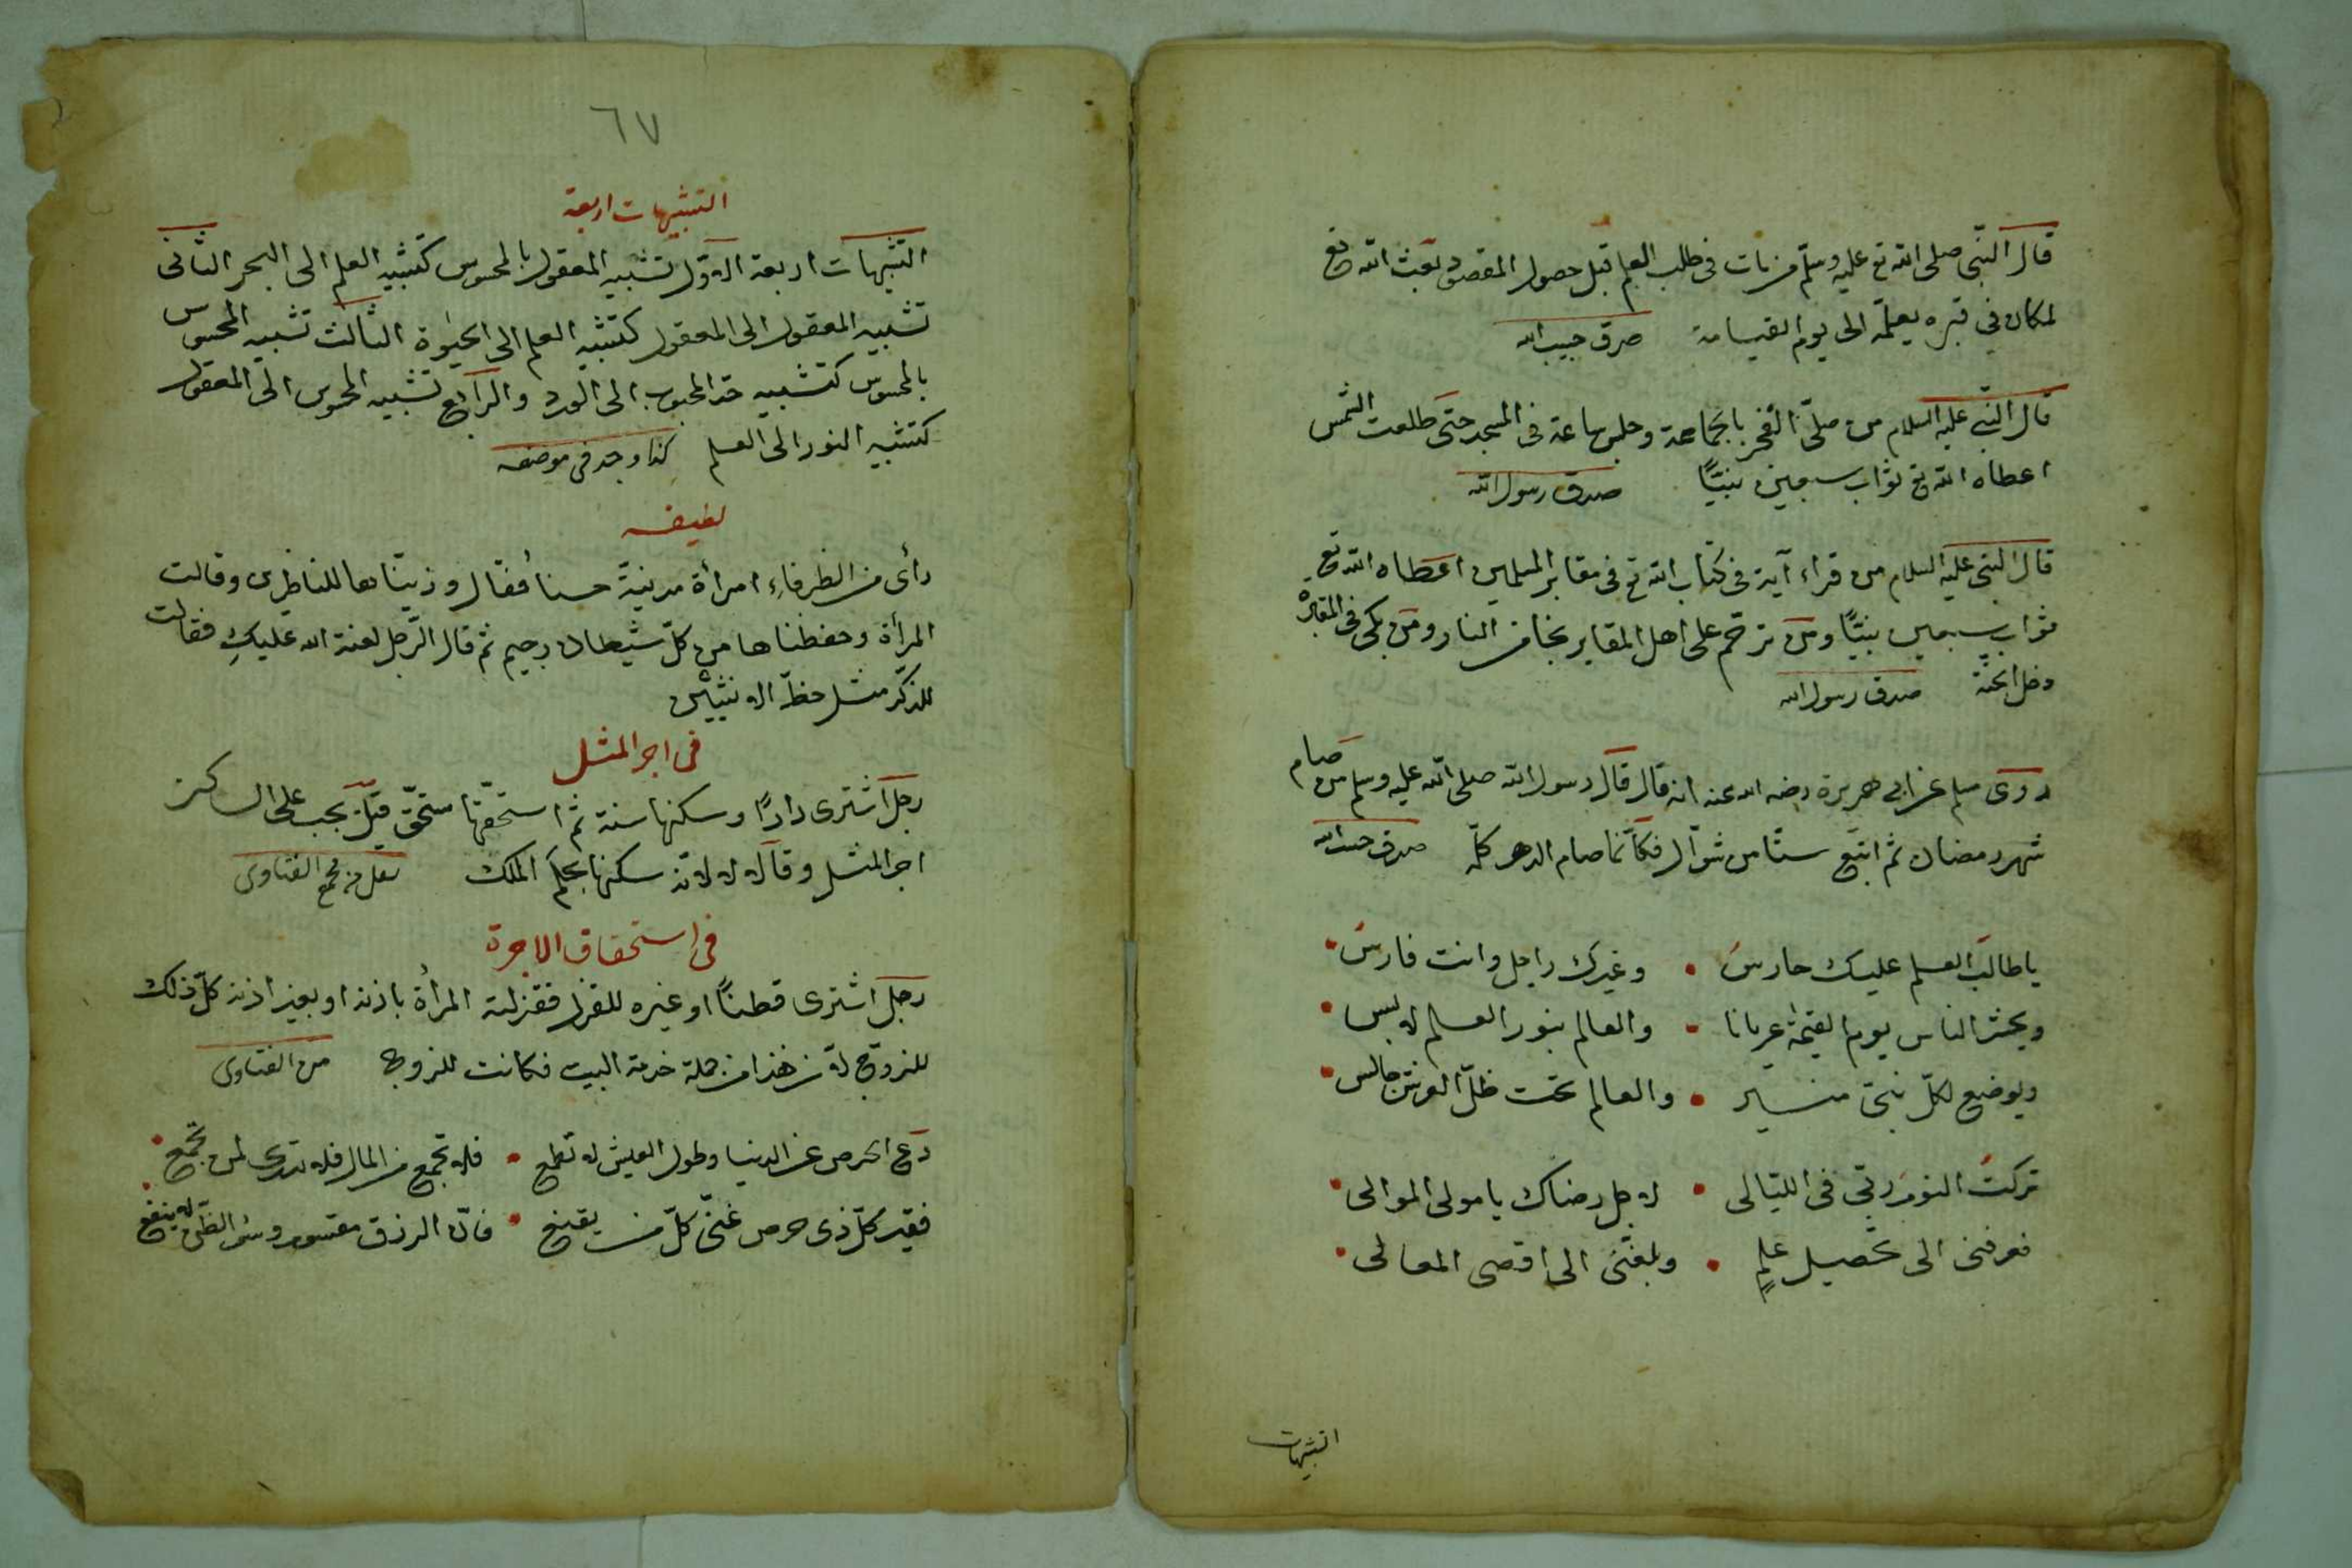 قال النبى صلى الله تع عليه وسلم من مات فى طلب العلم قبل حصول المقصود بعث الله تع
لمكان في قبره يعلمه الى يوم القيامة صدق حبيب الله
قال النبى عليه السلام من صلى الفجر بالجماعة وجلس ساعة فى المسجد حتى طلعت الشمس
اعطاه الله تع ثواب سبعين نبيًا صدق رسول الله
قال النبى عليه السلام من قراء آية فى كتاب الله تع فى مقابر المسلمين اعطاه الله تع
ثواب سبعين نبيًا ومن ترحم على اهل المقابر نجا من النار ومن بكى فى المقابر
دخل الجنة صدق رسول الله
روى مسلم عن ابى هريرة رضه الله عنه انه قال قال رسول الله صلى الله عليه وسلم من صام
شهر رمضان ثم اتبع ستًا من شوال فكأنما صام الدهر كله صدق حبيب الله
يا طالب العلم عليك حارس • وغيرك راجل وانت فارس •
ويحشر الناس يوم القيمة عريانا • والعالم بنور العلم لابس •
ويوضع لكل نبى منبر • والعالم تحت ظل العرش جالس •
تركت النوم ربى فى الليالى • لاجل رضاك يا مولى الموالى •
فوفقنى الى تحصيل علمٍ • وبلغنى الى اقصى المعالى •
التشبيهات
٦٧
التشبيهات اربعة
التشبيهات اربعة الاول تشبيه المعقول بالمحسوس كتشبيه العلم الى البحر الثانى
تشبيه المعقول الى المعقول كتشبيه العلم الى الحيوة الثالث تشبيه المحسوس
بالمحسوس كتشبيه خد المحبوب الى الورد والرابع تشبيه المحسوس الى المعقول
كتشبيه النور الى العلم كذا وجد فى موضعه
لطيفه
رأى من الظرفاء امرأة مدنية حسنا فقال وزيناها للناظرين وقالت
المرأة وحفظناها من كل شيطان رجيم ثم قال الرجل لعنة الله عليكِ فقالت
للذكر مثل حظ الانثيين
فى اجر المثل
رجل اشترى دارًا وسكنها سنة ثم استحقها مستحق قيل يجب على الساكن
اجر المثل وقال لا لانه سكنها بحكم الملك نقل من مجمع الفتاوى
فى استحقاق الاجرة
رجل اشترى قطنًا او غيره للغزل فغزلته المرأة باذنه او بغير اذنه كل ذلك
للزوج لان هذا من جملة خدمة البيت فكانت للزوج من الفتاوى
دع الحرص عن الدنيا وطول العيش لا تطمع • فلا تجمع من المال فلا تدرى لمن تجمع •
فقير كل ذى حرص غنى كل من يقنع • فان الرزق مقسوم وسوء الظن لا ينفع •